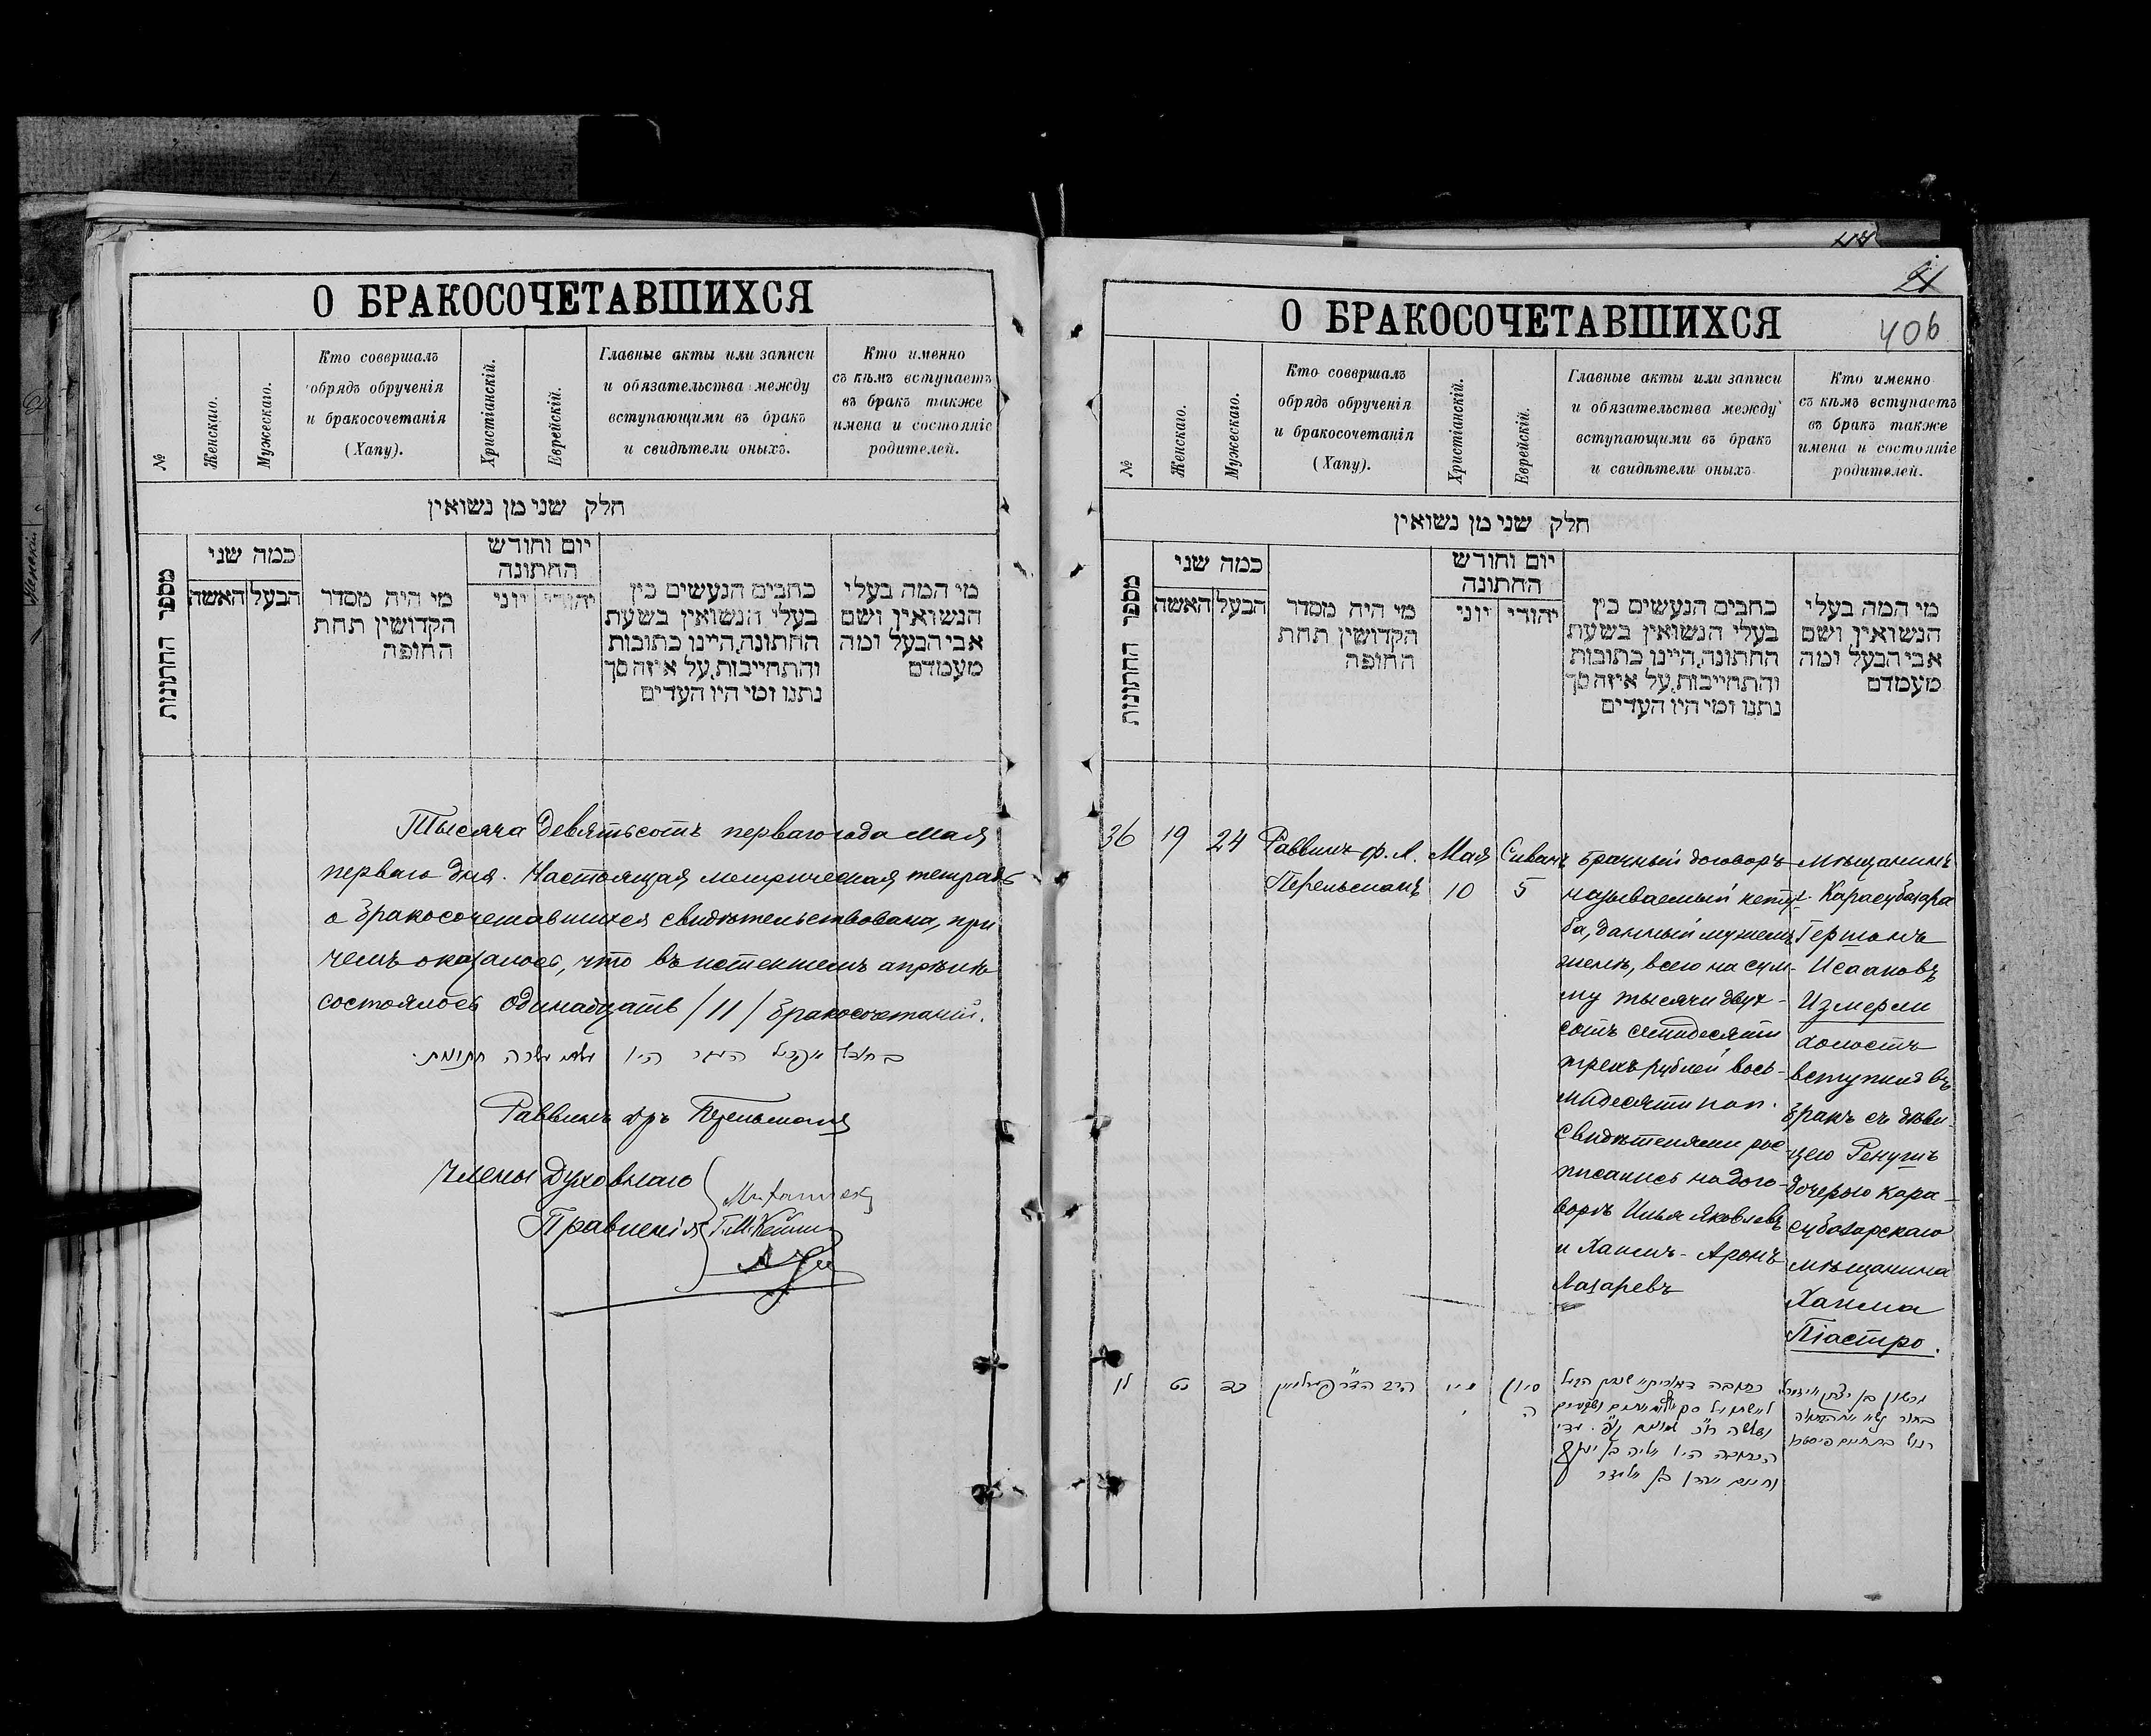 О БРАКОСОЧЕТАВШИХСЯ
№
Женскаго.
Мужескаго.
Кто совершалъ
обрядъ обрученія
и бракосочетанія
(Хапу).
Христіанскій.
Еврейскій.
Главные акты или записи
и обязательства между
вступающими въ бракъ
и свидѣтели оныхъ.
Кто именно
съ кѣмъ вступаетъ
въ бракъ также
имена и состояніе
родителей.
חלק שני מן נשואין
מספר החתונות
כמה שני
האשה
הבעל
מי היה מסדר
הקדושין תחת
החופה
יום וחודש
החתונה
יוני
יהודי
כתבים הנעשים בין
בעלי הנשואין בשעת
החתונה, היינו כתובות
והתחייבות, על איזה סך
נתנו ומי היו העדים
מי המה בעלי
הנשואין ושם
אבי הבעל ומה
מעמדם
Тысяча девятьсотъ перваго года мая
перваго дня. Настоящая метрическая тетрадь
о бракосочетавшихся свидѣтельствована, при
чемъ оказалось, что въ истекшемъ апрѣлѣ
состоялось одинадцать /11/ бракосочетаній.
Раввинъ Др Перельманъ
Члены Духовнаго
Правленія
О БРАКОСОЧЕТАВШИХСЯ
406
№
Женскаго.
Мужескаго.
Кто совершалъ
обрядъ обрученія
и бракосочетанія
(Хапу).
Христіанскій.
Еврейскій.
Главные акты или записи
и обязательства между
вступающими въ бракъ
и свидѣтели оныхъ
Кто именно
съ кѣмъ вступаетъ
въ бракъ также
имена и состояніе
родителей.
חלק שני מן נשואין
מספר החתונות
כמה שני
האשה
הבעל
מי היה מסדר
הקדושין תחת
החופה
יום וחודש
החתונה
יוני
יהודי
כתבים הנעשים בין
בעלי הנשואין בשעת
החתונה, היינו כתובות
והתחייבות, על איזה סך
נתנו ומי היו העדים
מי המה בעלי
הנשואין ושם
אבי הבעל ומה
מעמדם
36
19
24
Раввинъ Ф. Л.
Перельманъ
Мая
10
Сиванъ
5
Брачный договоръ
называемый кету-
ба, данный мужемъ
женѣ, всего на сум-
му тысячи двух-
сотъ семидесяти
трехъ рублей вось-
мидесяти коп.
Свидѣтелями рос-
писались на дого-
ворѣ Илья Яковлевъ
и Хаимъ-Аронъ
Лазаревъ
Мѣщанинъ
г. Карасубазара
Гершонъ
Исааковъ
Измерли
холостъ
вступилъ въ
бракъ съ дѣви-
цею Ренушъ
дочерью кара-
субазарскаго
мѣщанина
Хаима
Піастро.
לו
כד
סיון
ה